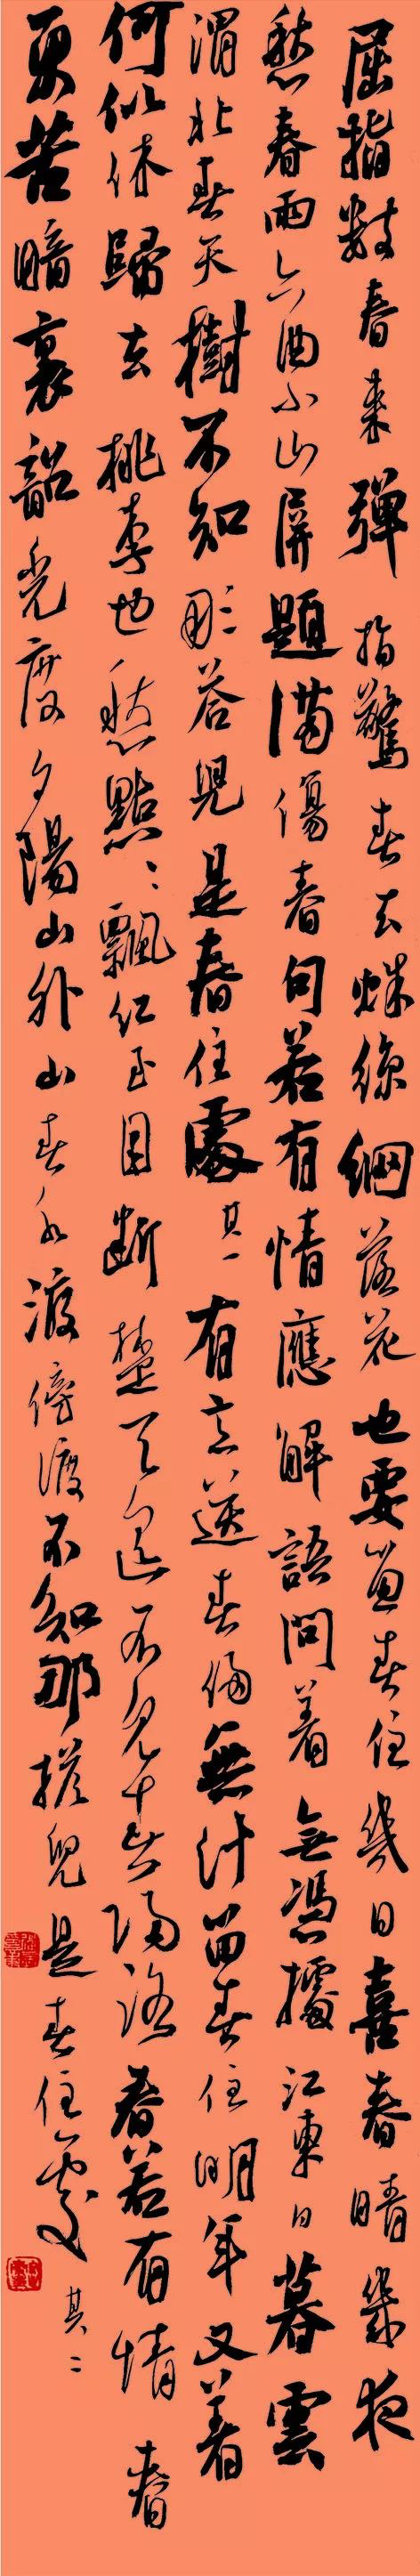 屈指數春来彈指驚春去蛛絲網落花也要留春住幾日喜春晴幾夜
愁春雨六曲小山屏題滿傷春句若有情應解語問着無憑據江東日暮雲
渭北春天樹不知那荅兒是春住處其一有意送春歸無計留春住明年又着
何似休歸去桃李也愁點〻飄红玉目断楚天遥不見春歸路春若有情春
更苦暗裏韶光度夕陽山外山春水渡傍渡不知那搭兒是春住處其二